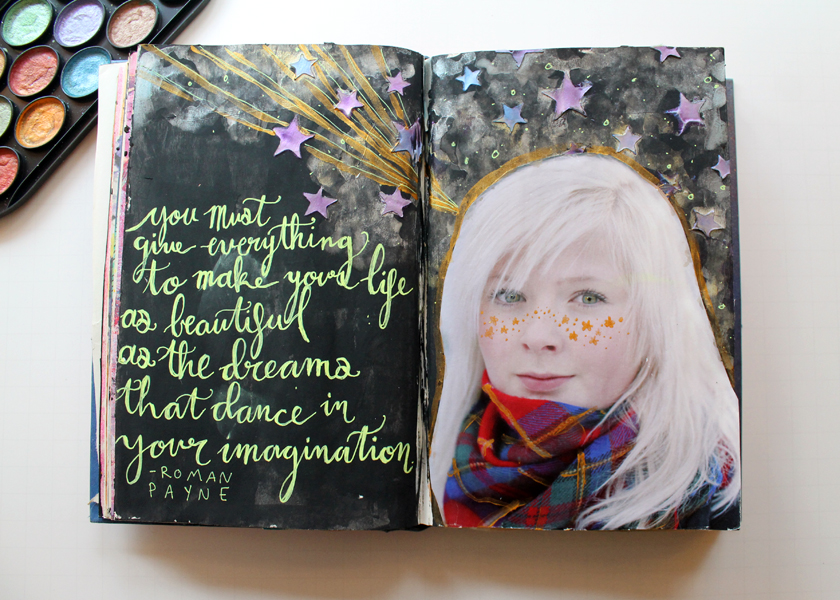 you must
give everything
to make your life
as beautiful
as the dreams
that dance in
your imagination
-ROMAN
PAYNE